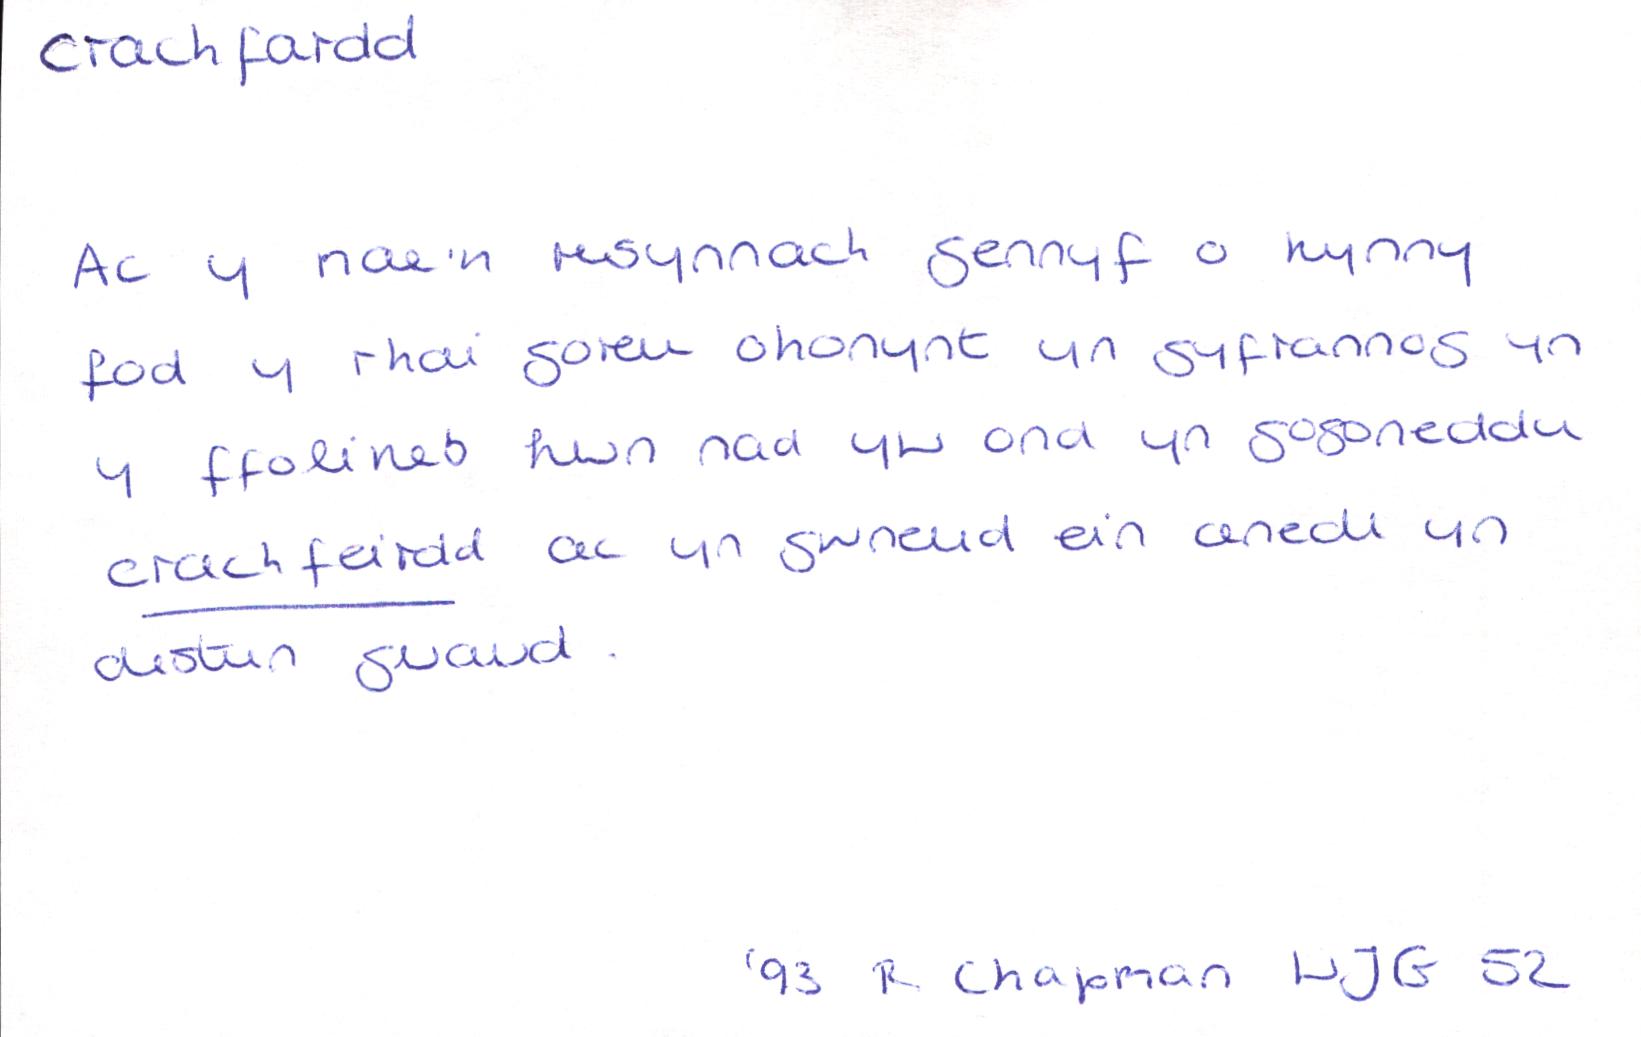 crachfardd
Ac y mae'n resynnach gennyf o hynny
fod y rhai goreu ohonynt yn gyfrannog yn
y ffolineb hwn nad yw ond yn gogoneddu
crachfeirdd ac yn gwneud ein cenedl yn
destun gwawd.
'93 R Chapman WJG 52